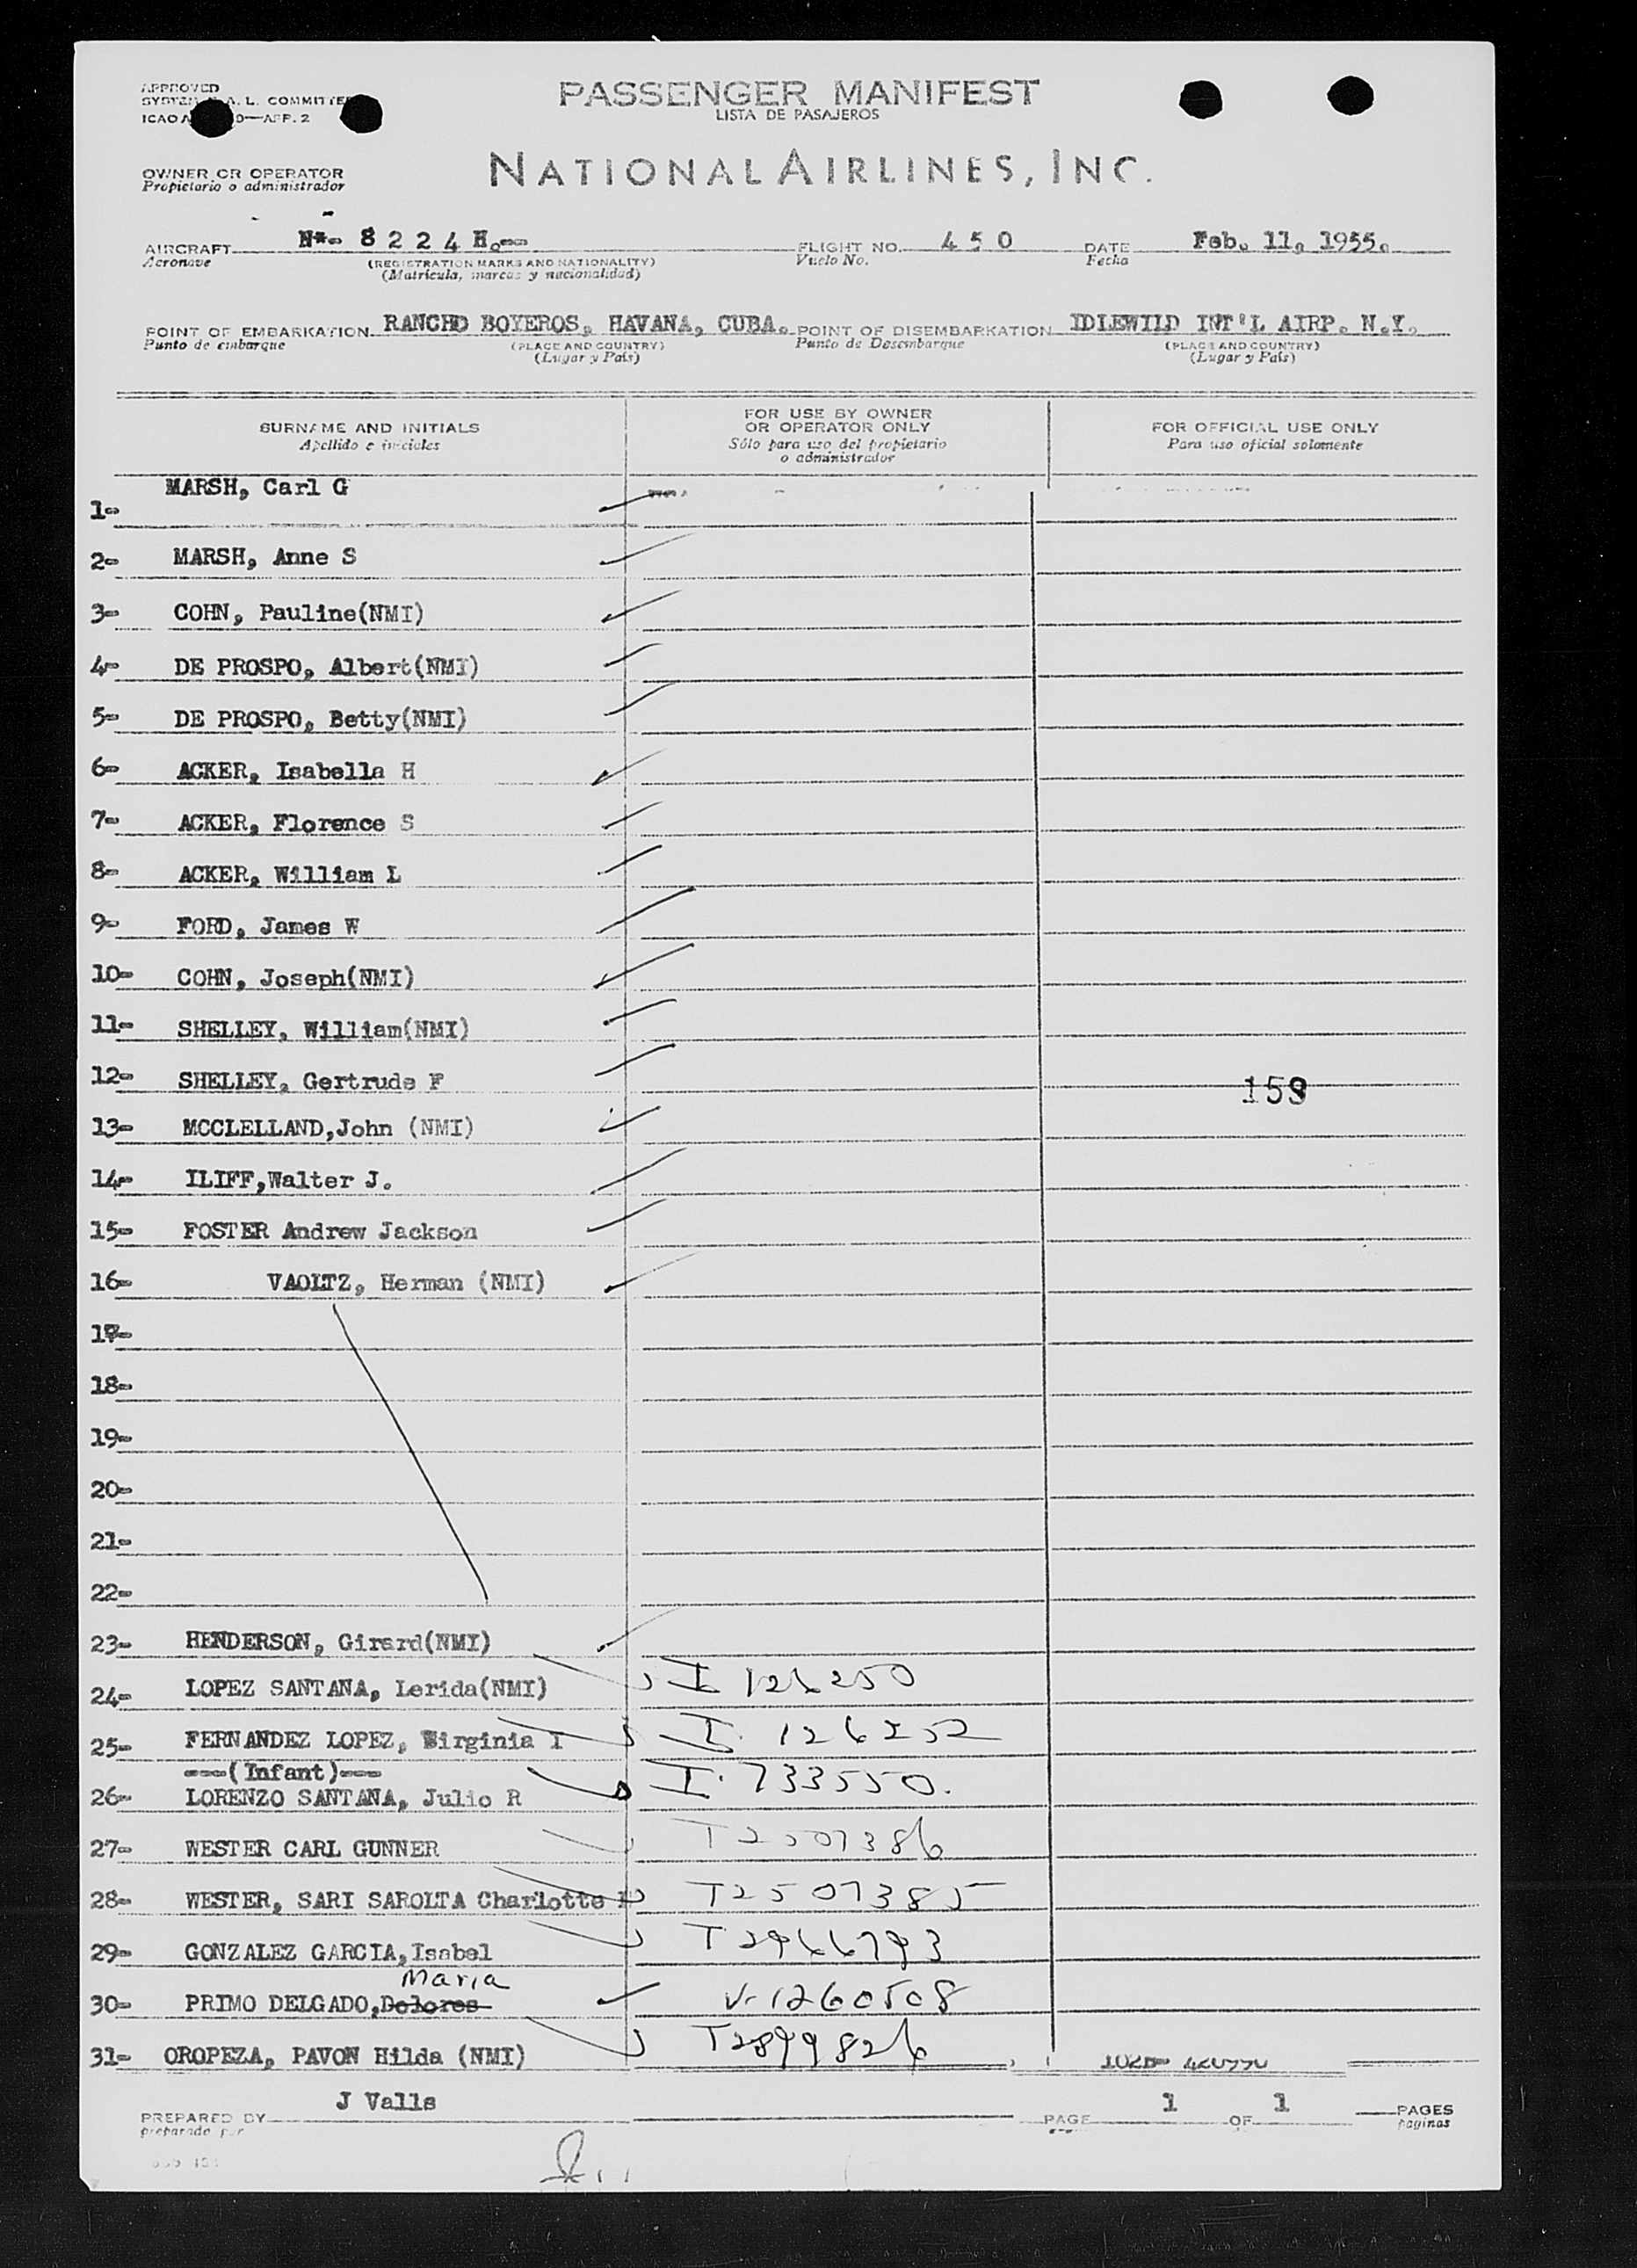 APPROVED
PASSENGER MANIFEST
LISTA DE PASAJEROS
A. L. COMMITTEE
ICAO A 9—APP. 2
OWNER OR OPERATOR
Propietario o administrador
NATIONAL AIRLINES, INC.
AIRCRAFT N*- 8 2 2 4 H.-- FLIGHT NO. 4 5 0 DATE Feb. 11, 1955.
Acronave (REGISTRATION MARKS AND NATIONALITY) Vuelo No. Fecha
(Matricula, marcas y nacionalidad)
POINT OF EMBARKATION RANCHO BOYEROS, HAVANA, CUBA. POINT OF DISEMBARKATION IDLEWILD INT'L AIRP. N.Y.
Punto de embarque (PLACE AND COUNTRY) Punto de Desembarque (PLACE AND COUNTRY)
(Lugar y País) (Lugar y País)
SURNAME AND INITIALS
Apellido e iniciales
FOR USE BY OWNER
OR OPERATOR ONLY
Sólo para uso del propietario
o administrador
FOR OFFICIAL USE ONLY
Para uso oficial solamente
1- MARSH, Carl G
2- MARSH, Anne S
3- COHN, Pauline(NMI)
4- DE PROSPO, Albert(NMI)
5- DE PROSPO, Betty(NMI)
6- ACKER, Isabella H
7- ACKER, Florence S
8- ACKER, William L
9- FORD, James W
10- COHN, Joseph(NMI)
11- SHELLEY, William(NMI)
12- SHELLEY, Gertrude F
159
13- MCCLELLAND,John (NMI)
14- ILIFF,Walter J.
15- FOSTER Andrew Jackson
16- VAOLTZ, Herman (NMI)
17-
18-
19-
20-
21-
22-
23- HENDERSON, Girard(NMI)
24- LOPEZ SANTANA, Lerida(NMI) I 126250
25- FERNANDEZ LOPEZ, Virginia I I. 126252
---(Infant)---
26- LORENZO SANTANA, Julio R I. 733550.
27- WESTER CARL GUNNER T2507386
28- WESTER, SARI SAROLTA Charlotte T2507385
29- GONZALEZ GARCIA,Isabel T2966793
Maria
30- PRIMO DELGADO,Dolores V-1260508
31- OROPEZA, PAVON Hilda (NMI) T2899826
PREPARED BY J Valls PAGE 1 OF 1 PAGES
preparado por paginas